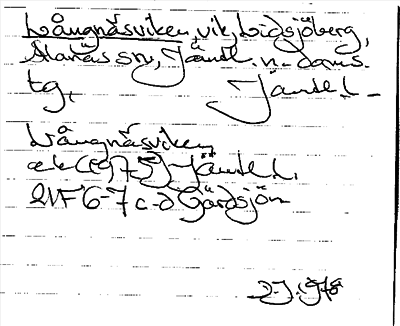 Långnäsviken, vik, Lidsjöberg,
Alanäs sn, Jämtl. n. doms.
tg, Jämtl. L
Långnäsviken
ek (1975) Jämtl. L.
21F 6-7 c-d Gärdsjön
1978